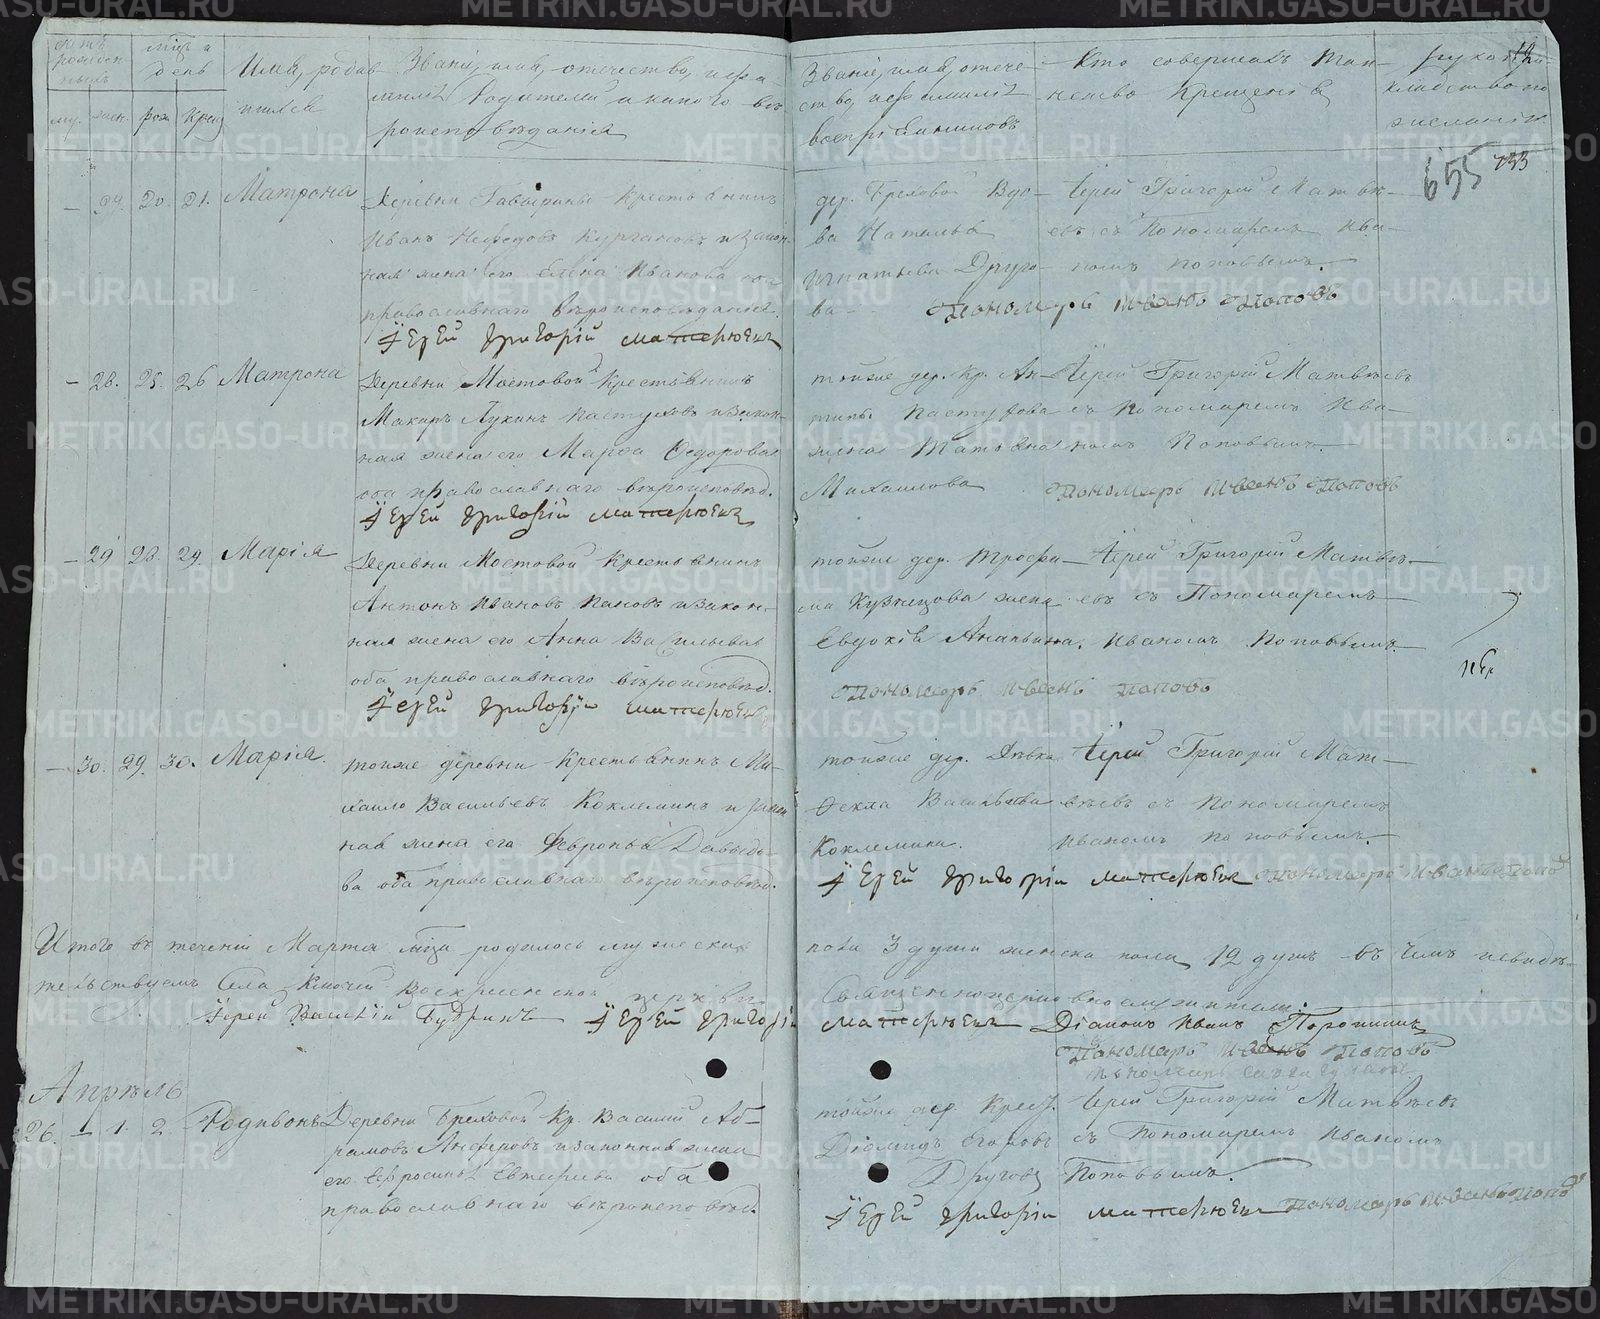 Счетъ рожденныхъ
муж. жен.
мцъ и день
рож крещ
Имя родив
шихся
Званіе, имя, отчество, и фа
милія родителей и какого вѣ
роисповѣданія
Званіе, имя, отече
ство, и фамилія
воспріемниковъ
Кто совершалъ таи
нство крещенія
рукопри
кладство по
желанію
12
655 733
— 27. 20. 21. Матрона
Деревни крестьянинъ
Иванъ Нефедовъ Кургановъ и закон
ная жена его Елена Иванова оба
православнаго вѣроисповѣданія.
Іерей Григорій
дер. Греховой вдо
ва Наталья
Игнатьева Друго
ва
Іерей Григорій Матвѣ
евъ съ Пономаремъ Ива
номъ Поповымъ.
Пономарь Иванъ Поповъ
— 28. 25. 26 Матрона
Деревни Мостовой крестьянинъ
Макаръ Лукинъ Пастуховъ и закон
ная жена его Марфа Федорова
оба православнаго вѣроисповѣд.
Іерей Григорій
тойже дер. кр. Ан
типы Пастухова
жена Татьяна
Михаилова
Іерей Григорій Матвѣевъ
съ Пономаремъ Ива
номъ Поповымъ
Пономарь Иванъ Поповъ
— 29 28. 29. Марія
Деревни Мостовой крестьянинъ
Антонъ Ивановъ Пановъ и закон
ная жена его Анна Васильева
оба православнаго вѣроисповѣд.
Іерей Григорій
тойже дер. Трофи
ма Кузнецова жена
Евдокія Ананьина.
Іерей Григорій Матвѣ
евъ съ Пономаремъ
Иваномъ Поповымъ.
Пономарь Иванъ Поповъ
— 30. 29. 30. Марія.
тойже деревни крестьянинъ Ми
хаило Васильевъ Коклеминъ и закон
ная жена его Февронья Давыдо
ва оба православнаго вѣроисповѣд.
тойже дер. Дѣвка
Фекла Васильева
Коклемина.
Іерей Григорій Мат
вѣевъ съ Пономаремъ
Иваномъ Поповымъ
Іерей Григорій
Пономарь Иванъ Попо
Итого въ теченіи Марта мца родилось мужеска
пола 3 души женска пола 12 душъ въ чемъ и свидѣ
тельствуемъ Села Ключей Воскресенской церкви
Священноцерковнослужители:
Іерей Василій Будринъ Іерей Григорій
Діаконъ Иванъ Поротинъ
Пономарь Иванъ Поповъ
Апрѣль
26. — 1. 2. Родивонъ
Деревни Греховой Кр. Василій Аб
рамовъ Анферовъ и законная жена
его Ефросинья Евтефіева оба
православнаго вѣроисповѣд.
тойже дер. Крест.
Діомидъ Егоровъ
Друговъ
Іерей Григорій Матвѣевъ
съ Пономаремъ Иваномъ
Поповымъ.
Іерей Григорій
Пономарь Иванъ Попо
METRIKI.GASO-URAL.RU